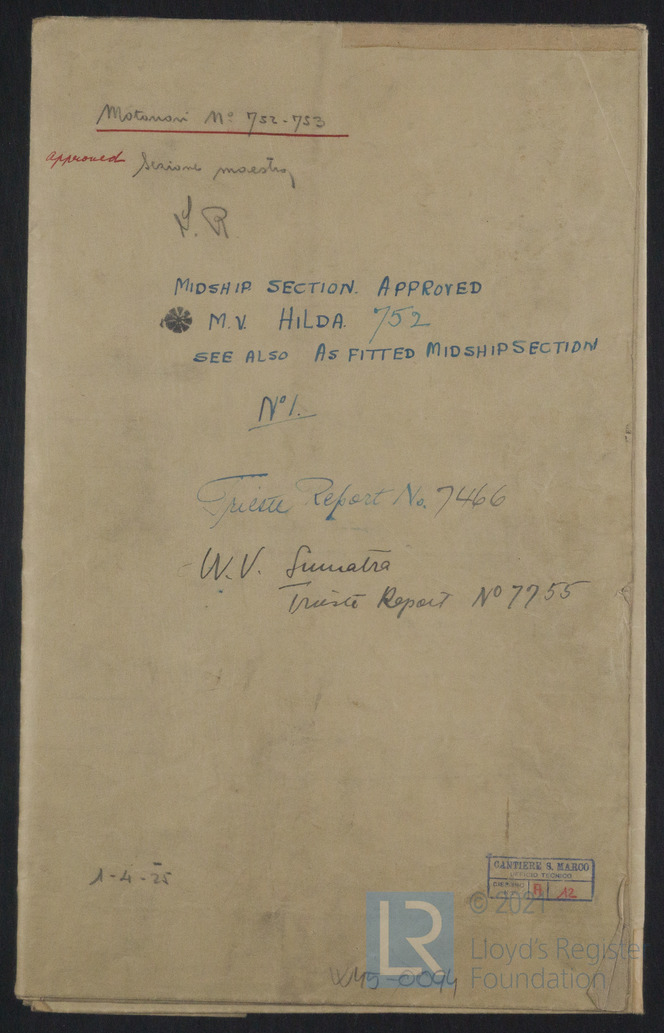 Motonavi Nº 752-753
approved Sezione maestra
L. R
MIDSHIP SECTION. APPROVED
M.V. HILDA. 752
SEE ALSO AS FITTED MIDSHIP SECTION
Nº1.
Trieste Report No. 7466
M.V. Sumatra
Trieste Report Nº 7755
1-4-25
CANTIERE S. MARCO
UFFICIO TECNICO
A 12
© 2021
LR
Lloyd's Register
Foundation
W45-0094